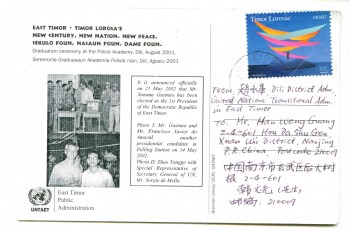 EAST TIMOR • TIMOR LOROSA'E
NEW CENTURY. NEW NATION. NEW PEACE.
SEKULO FOUN. NASAUN FOUN. DAME FOUN.
Graduation ceremony at the Police Academy, Dili, August 2001.
Seremonia Graduasaun Akademia Polisia nian, Dili, Agostu 2001.
It is announced officially on 21 May 2002 that Mr. Xanana Gusmao has been elected as the 1st President of the Democratic Republic of East Timor.
Photo I: Mr. Gusmao and Mr. Francisco Xavier do Amaral, another presidential candidate in Polling Station on 14 May 2002;
Photo II: Zhao Yongge with Special Representative of Secretary General of UN, Mr. Sergio de Mello.
UNTAET
East Timor
Public
Administration
Timor Lorosae
From: Dili District Adm,
United Nation Transitional Adm.
in East Timor
To: Mr. Han Weng Guang
2-4-601 Hou Da Shu Gen
Xuan Wu District, Nanjing
P.R. China, Postcode 210009
中国南京市玄武区后大树
根 2-4-601
(先生)
邮编: 210009